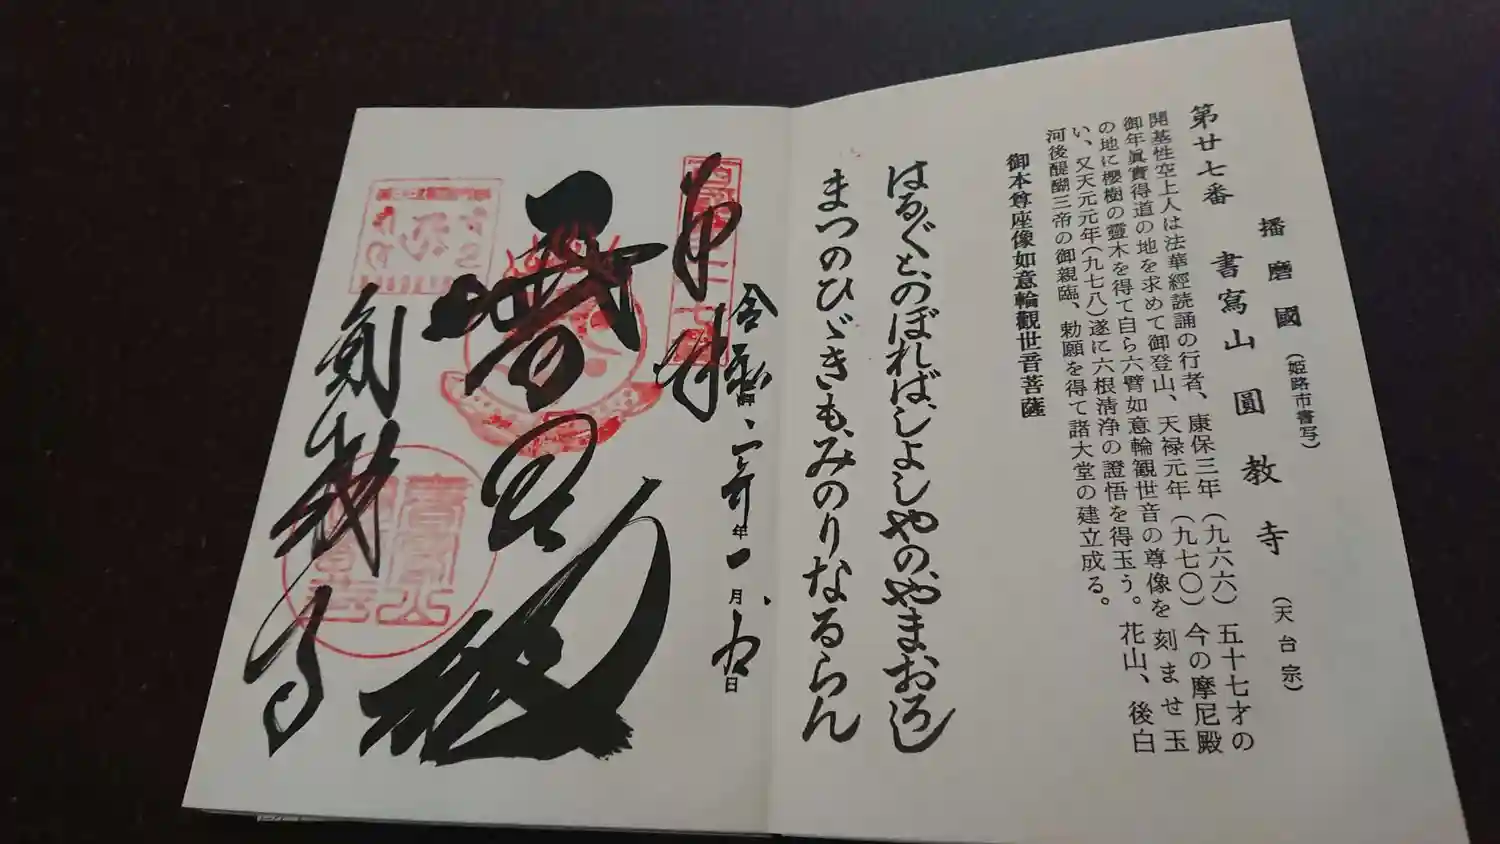 第廿七番
播磨國(姫路市書写)
書寫山圓教寺(天台宗)
開基性空上人は法華經読誦の行者、康保三年(九六六)五十七才の
御年眞實得道の地を求めて御登山、天禄元年(九七〇)今の摩尼殿
の地に櫻樹の靈木を得て自ら六臂如意輪観世音の尊像を刻ませ玉
い、又天元元年(九七八)遂に六根清浄の證悟を得玉う。花山、後白
河後醍醐三帝の御親臨、勅願を得て諸大堂の建立成る。
御本尊座像如意輪觀世音菩薩
はるばると、のぼれば、しよしやの、やまおろし
まつのひゞきも、みのりなるらん
第
令和
年一月
日